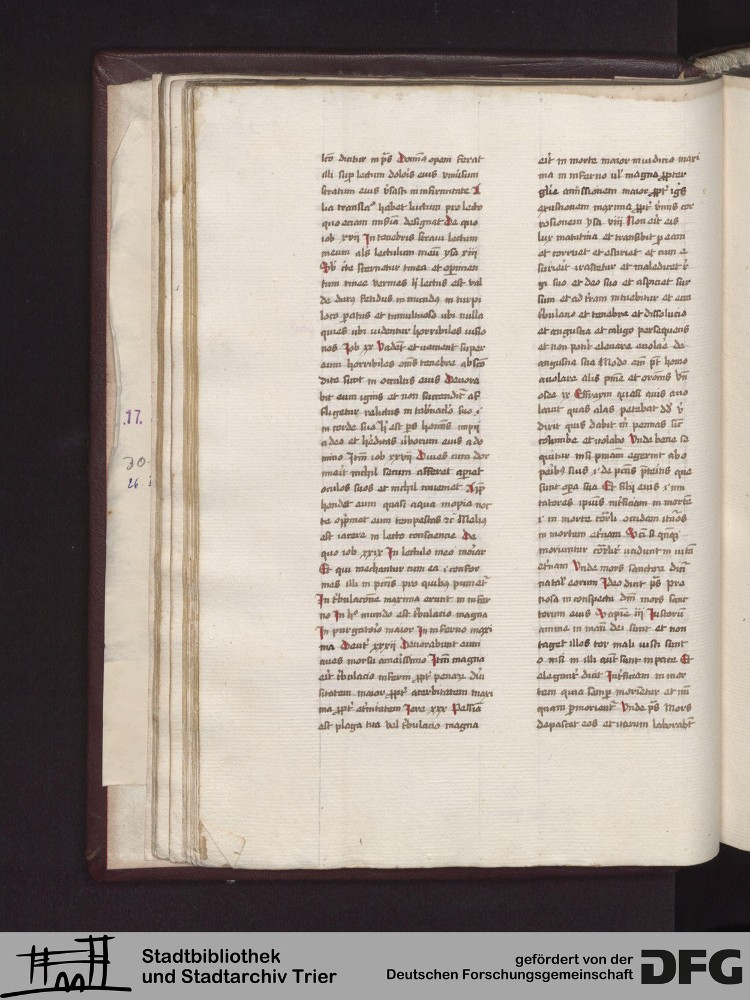 lco dicitur in ps Dominus opem ferat
illi sup lectum doloris eius universum
stratum eius versasti in infirmitate A
lia translatio habet luctum pro lecto
quo eciam miseria designatur De quo
iob xvii In tenebris stravi lectum
meum als lectulum meum ysa xiiii
Sub te sternetur tinea et operimen
tum tinee vermes Iste lectus est val
de durus fetidus inmundus in turpi
loco positus et tumultuoso ubi nulla
quies ubi videntur horribiles visio
nes Job xx Vadent et venient super
eum horribiles omnes tenebre abscon
dite sunt in occultis eius Devora
bit eum ignis qui non succendit af
fligetur relictus in tabernaculo suo i
in corde suo Iste est pars hominis impii
a deo et hereditas verborum eius a do
mino Item iob xxvii Dives cum dor
mierit nichil secum afferet aperiet
oculos suos et nichil inveniet App
hendet eum quasi aqua inopia noc
te opprimet eum tempestas etc Melius
est iacere in lecto consciencie De
quo iob xxix In lectulo meo moriar
Et qui mechantur cum ea i confor
mes illi in peccatis pro quibus punietur
In tribulacione maxima erunt in infer
no In hoc mundo est tribulacio magna
In purgatorio maior In inferno maxi
ma Deut xxxii Devorabunt eum
aves morsu amarissimo Item magna
erit tribulacio inferni propter penarum diu
sitatem maior propter acerbitatem maxi
ma propter eternitatem Jere xxx Pessima
est plaga tua vel tribulacio magna
erit in morte maior in iudicio maxi
ma in inferno vel magna propter
glorie amissionem maior propter ignis
exustionem maxima propter vermis cor
rosionem ysa viii Non erit eis
lux matutina et transibit per eam
et corruet et esuriet et cum e
surierit irascetur et maledicet re
gi suo et deo suo et aspiciet sur
sum et ad terram intuebitur et ecce
tribulacio et tenebre et dissolucio
et angustia et caligo persequens
et non poterit elevare evolare de
angustia sua Modo enim potest homo
avolare alis penitencie et orationis Unde
osee ix Effraym quasi avis avo
lavit quas alas petebat david ubi
dixit quis dabit mihi pennas sicut
columbe et volabo Unde bene se
quitur nisi penitenciam egerint ab o
peribus suis i de peccatis preteritis que
sunt opera sua Et filii eius i imi
tatores ipsius interficiam in morte
i in morte corporali occidam iterum
in mortem eternam Sicut sancti quamquam
moriuntur corporaliter vadunt in vitam
eternam Unde mors sanctorum dicitur
natale eorum Ideo dicit ps pre
tiosa in conspectu domini mors sanc
torum eius Sapiencie iii Justorum
anime in manu dei sunt et non
tanget illos tor mali visi sunt
o mori illi autem sunt in pace Et
eleganter dicit Interficiam in mor
tem quia semper morientur et num
quam premorientur Unde ps Mors
depascet eos et iterum laborabunt
17.
30
26
Stadtbibliothek
und Stadtarchiv Trier
gefördert von der
Deutschen Forschungsgemeinschaft
DFG